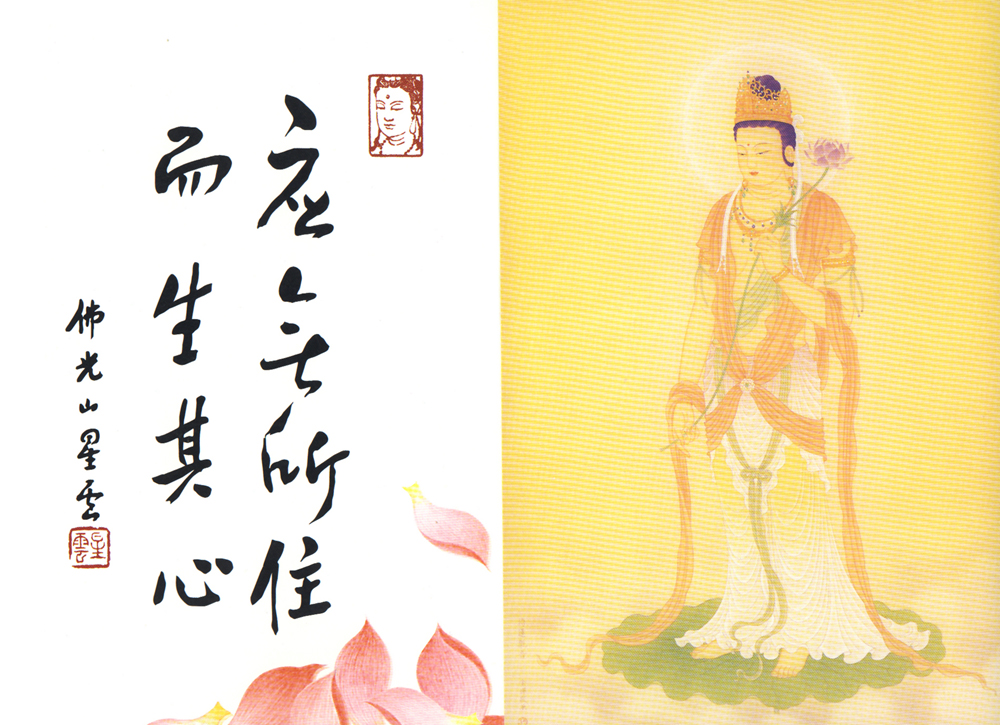 應無所住
而生其心
佛光山星雲
星雲